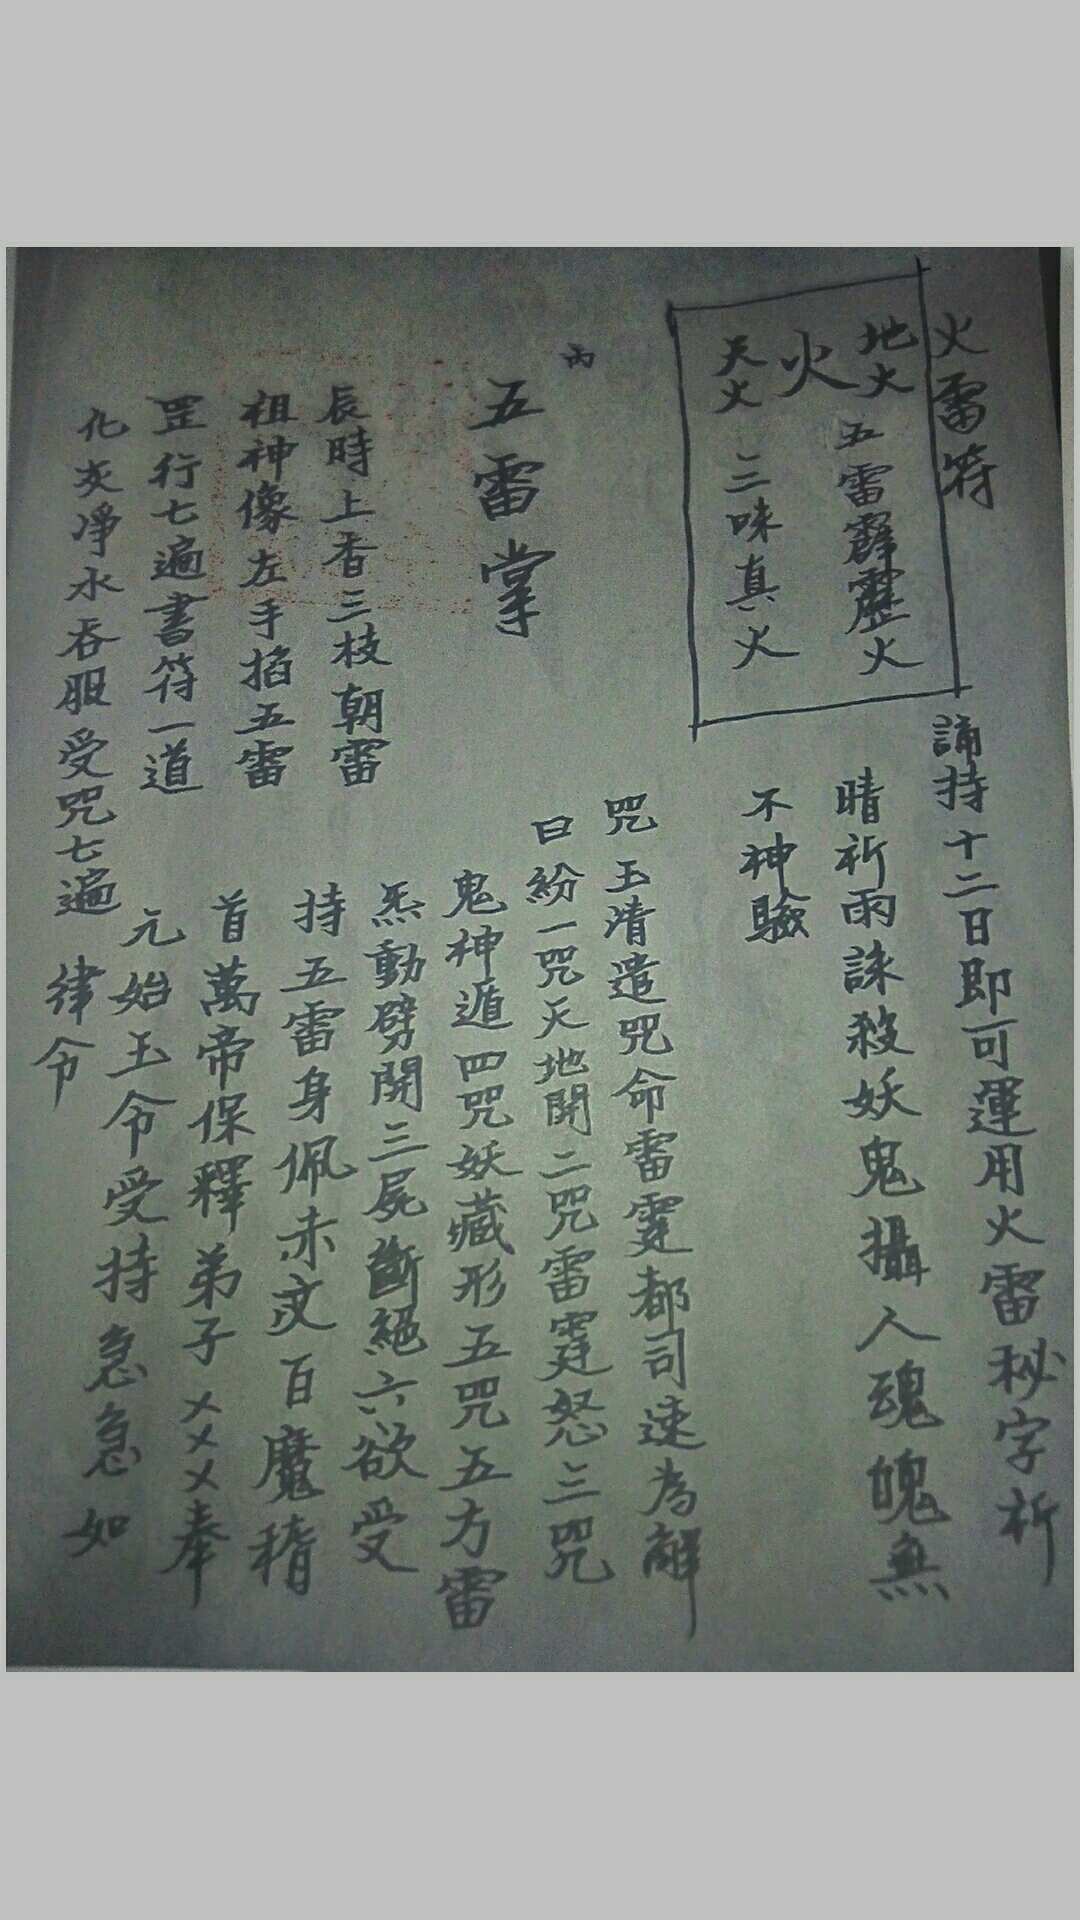 火雷符
地火
火
天火
五雷霹靂火
三味真火
誦持十二日即可運用火雷秘字祈
晴祈雨誅殺妖鬼攝人魂魄無
不神驗
五雷掌
咒玉清遣咒命雷霆都司速為解
曰紛一咒天地開二咒雷霆怒三咒
鬼神遁四咒妖藏形五咒五方雷
炁動劈開三屍斷絕六欲受
持五雷身佩赤文百魔稽
首萬帝保釋弟子㐅㐅㐅奉
元始玉令受持急急如
律令
辰時上香三枝朝雷
祖神像左手掐五雷
罡行七遍書符一道
化灰凈水吞服受咒七遍